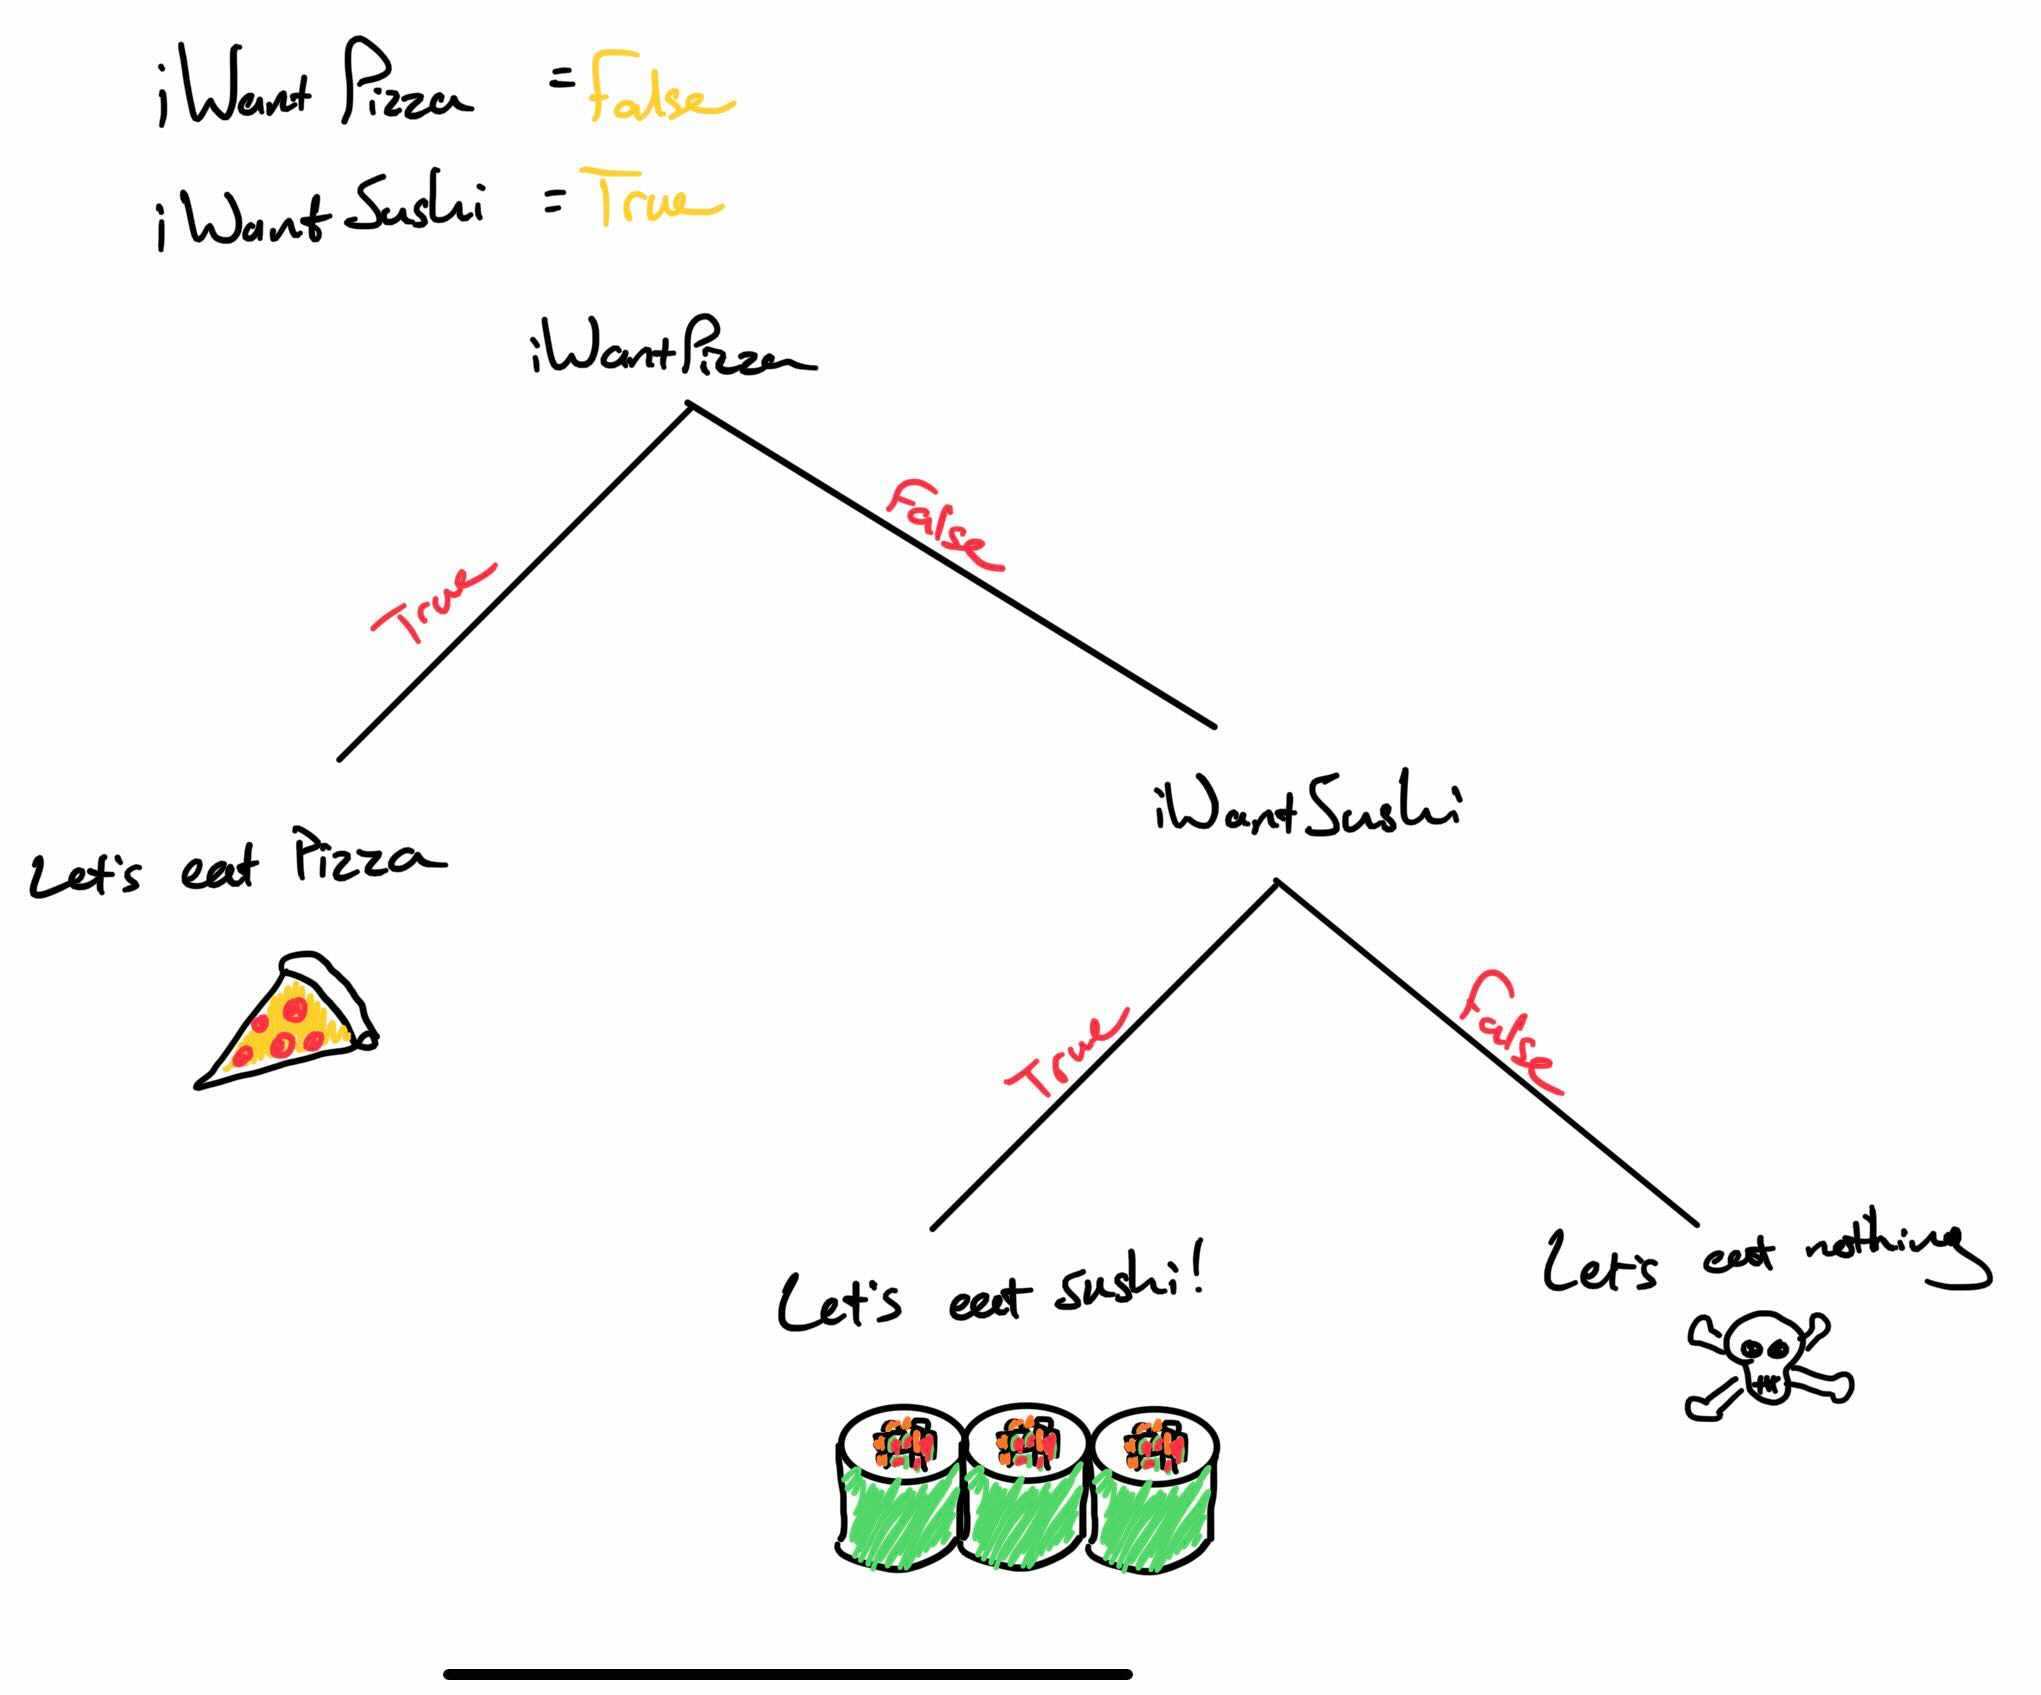 iWantPizza = False
iWantSushi = True
iWantPizza
True
False
Let's eat Pizza
iWantSushi
True
False
Let's eat sushi!
Let's eat nothing